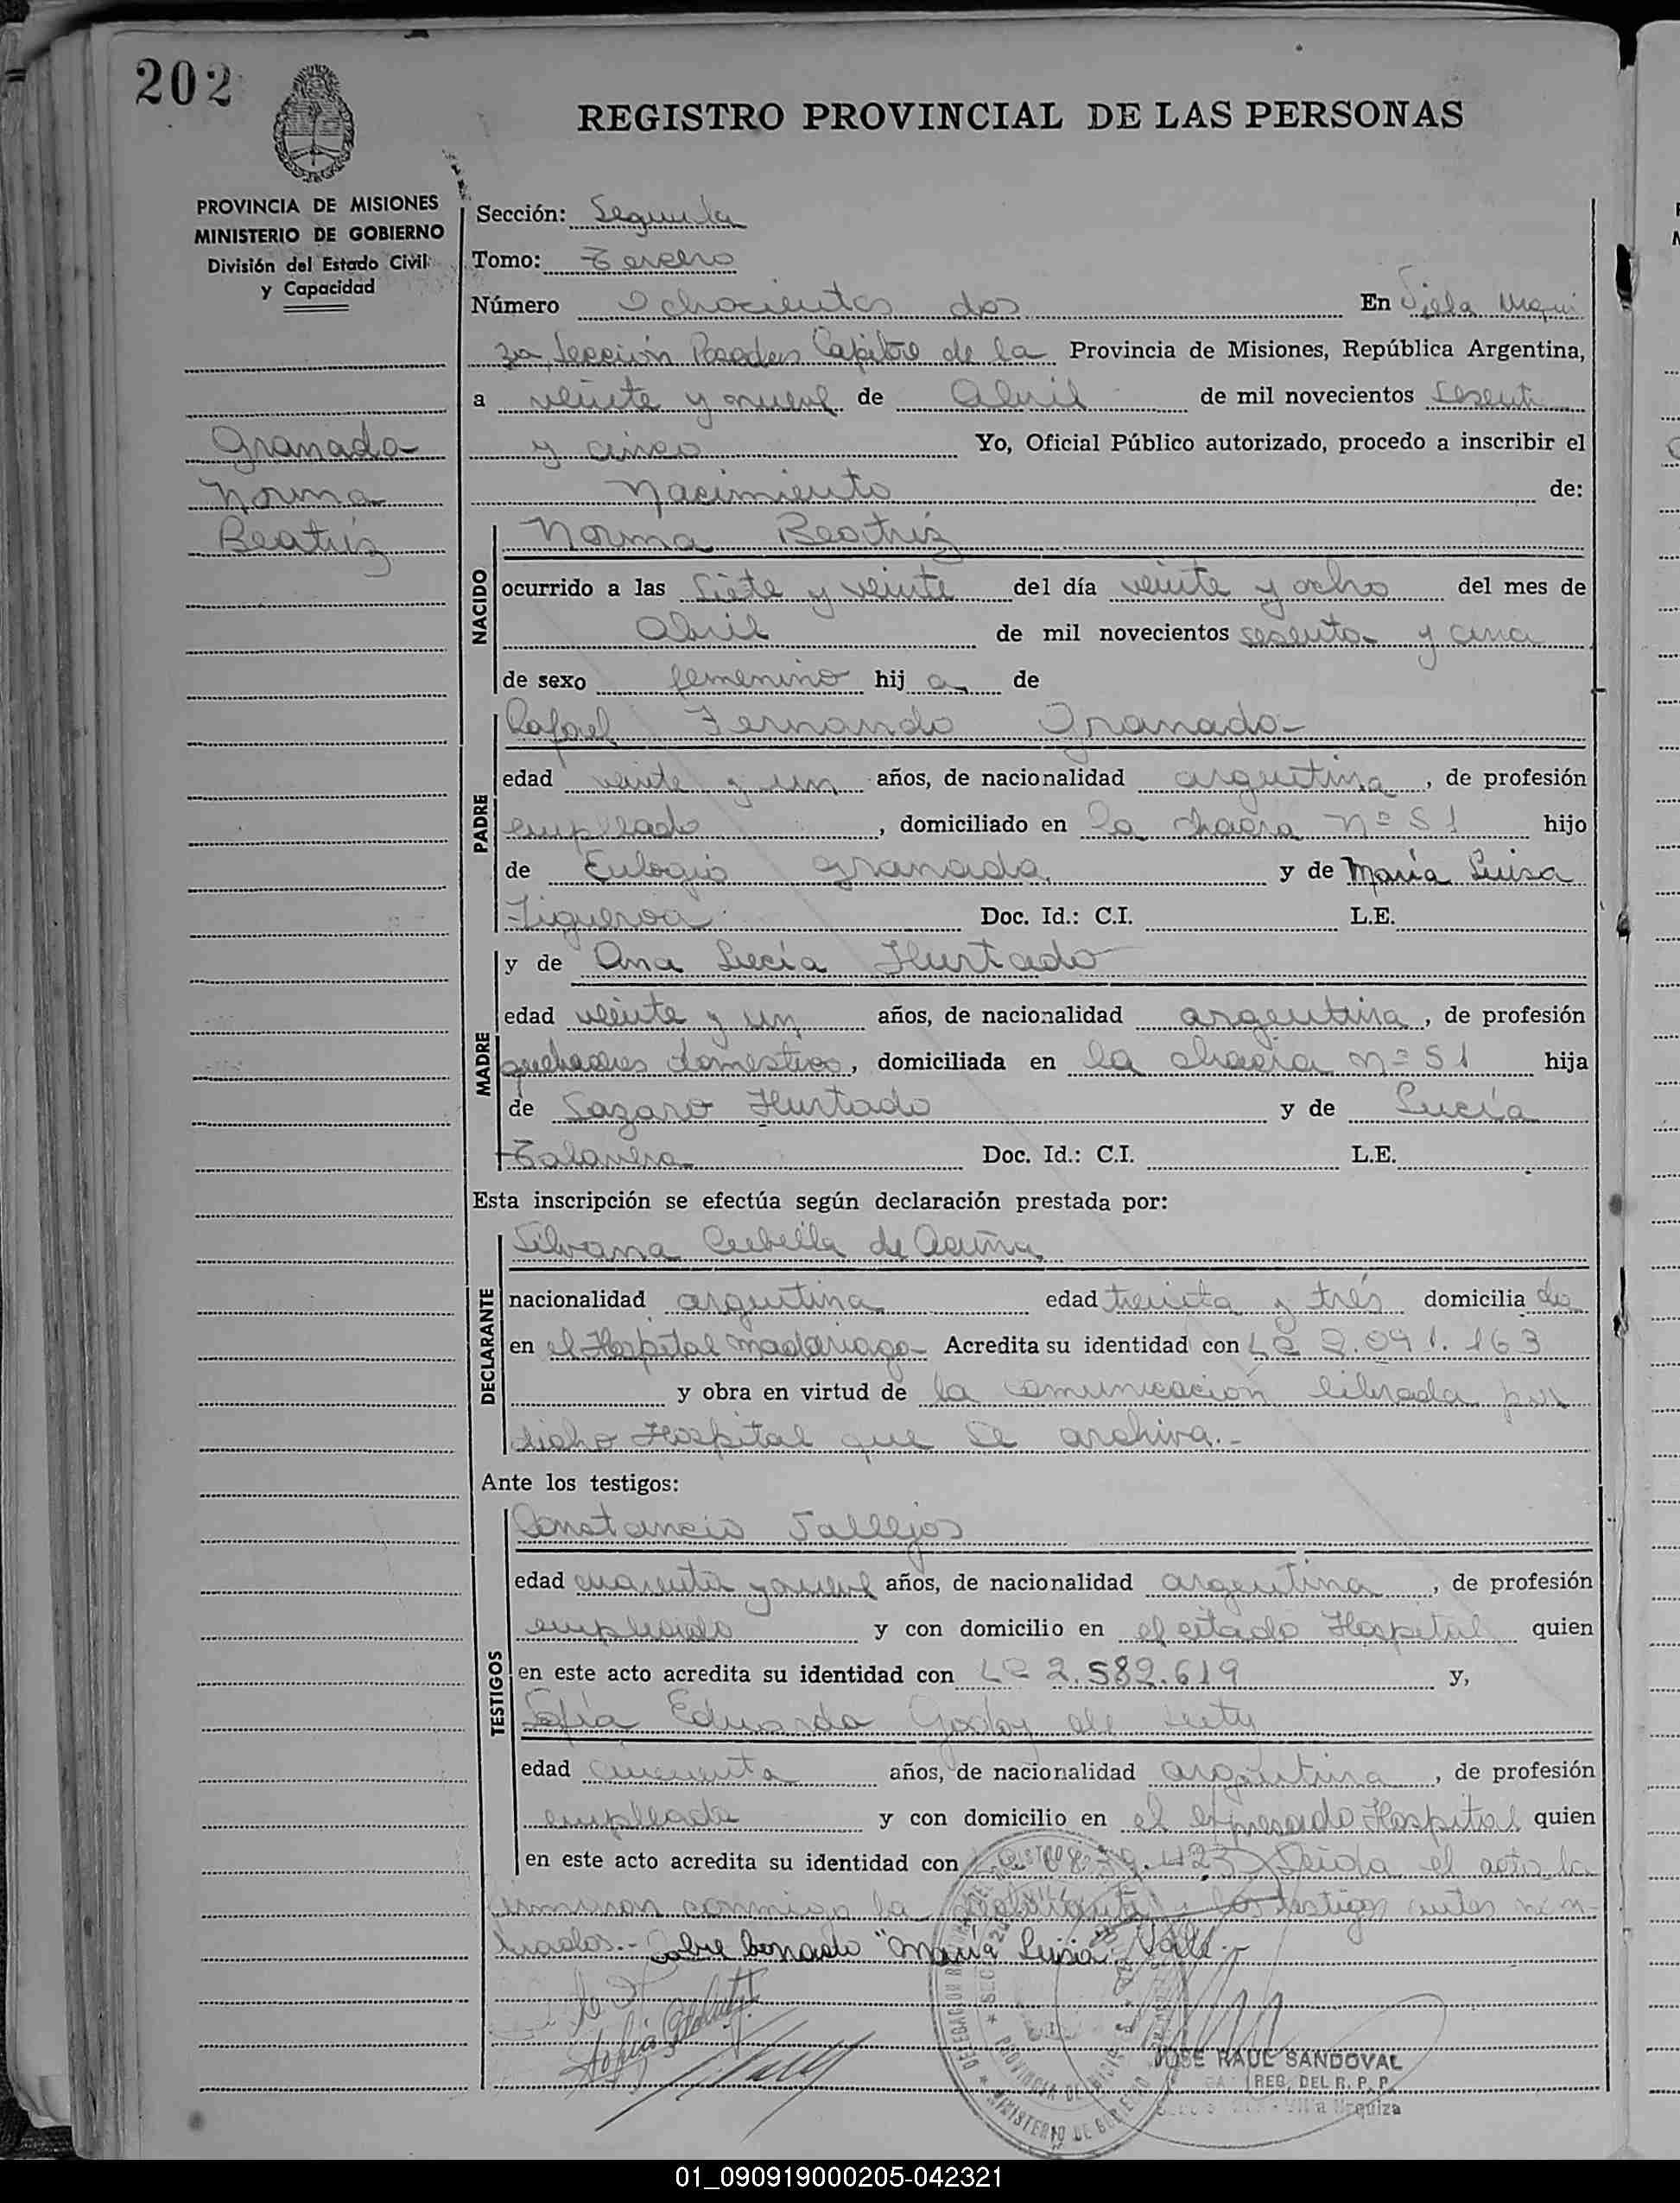 202
REGISTRO PROVINCIAL DE LAS PERSONAS
PROVINCIA DE MISIONES
MINISTERIO DE GOBIERNO
División del Estado Civil
y Capacidad
Granado
Norma
Beatriz
Sección: Segunda
Tomo: Tercero
Número Ochocientos dos En Villa Urqui
za Sección Posadas Capital de la Provincia de Misiones, República Argentina,
a veinte y nueve de Abril de mil novecientos sesenta
y cinco Yo, Oficial Público autorizado, procedo a inscribir el
Nacimiento de:
NACIDO
Norma Beatriz
ocurrido a las siete y veinte del día veinte y ocho del mes de
Abril de mil novecientos sesenta y cinco
de sexo femenino hij a de
PADRE
Rafael Fernando Granado
edad veinte y un años, de nacionalidad argentina, de profesión
empleado, domiciliado en la chacra nº 51 hijo
de Eulogio Granado y de María Luisa
Figueroa Doc. Id.: C.I. L.E.
MADRE
y de Ana Lucía Hurtado
edad veinte y un años, de nacionalidad argentina, de profesión
quehaceres domesticos, domiciliada en la chacra nº 51 hija
de Lazaro Hurtado y de Lucía
Talavera Doc. Id.: C.I. L.E.
Esta inscripción se efectúa según declaración prestada por:
DECLARANTE
Silvana de Acuña
nacionalidad argentina edad treinta y trés domicilia da
en el Hospital Madariaga Acredita su identidad con 2.091.163
y obra en virtud de la comunicación librada por
dicho Hospital que se archiva.-
Ante los testigos:
TESTIGOS
Constancio Vallejos
edad cuarenta y nueve años, de nacionalidad argentina, de profesión
empleado y con domicilio en el citado Hospital quien
en este acto acredita su identidad con 2.582.619 y,
Sofía Eduarda Godoy de
edad cincuenta años, de nacionalidad argentina, de profesión
empleada y con domicilio en el expresado Hospital quien
en este acto acredita su identidad con Leida el acta la
firmaron conmigo la declarante y los testigos antes nom-
brados.- Sobre borrado "María Luisa" Vale.-
JOSE RAUL SANDOVAL
REG. DEL R. P. P.
Villa Urquiza
01_090919000205-042321